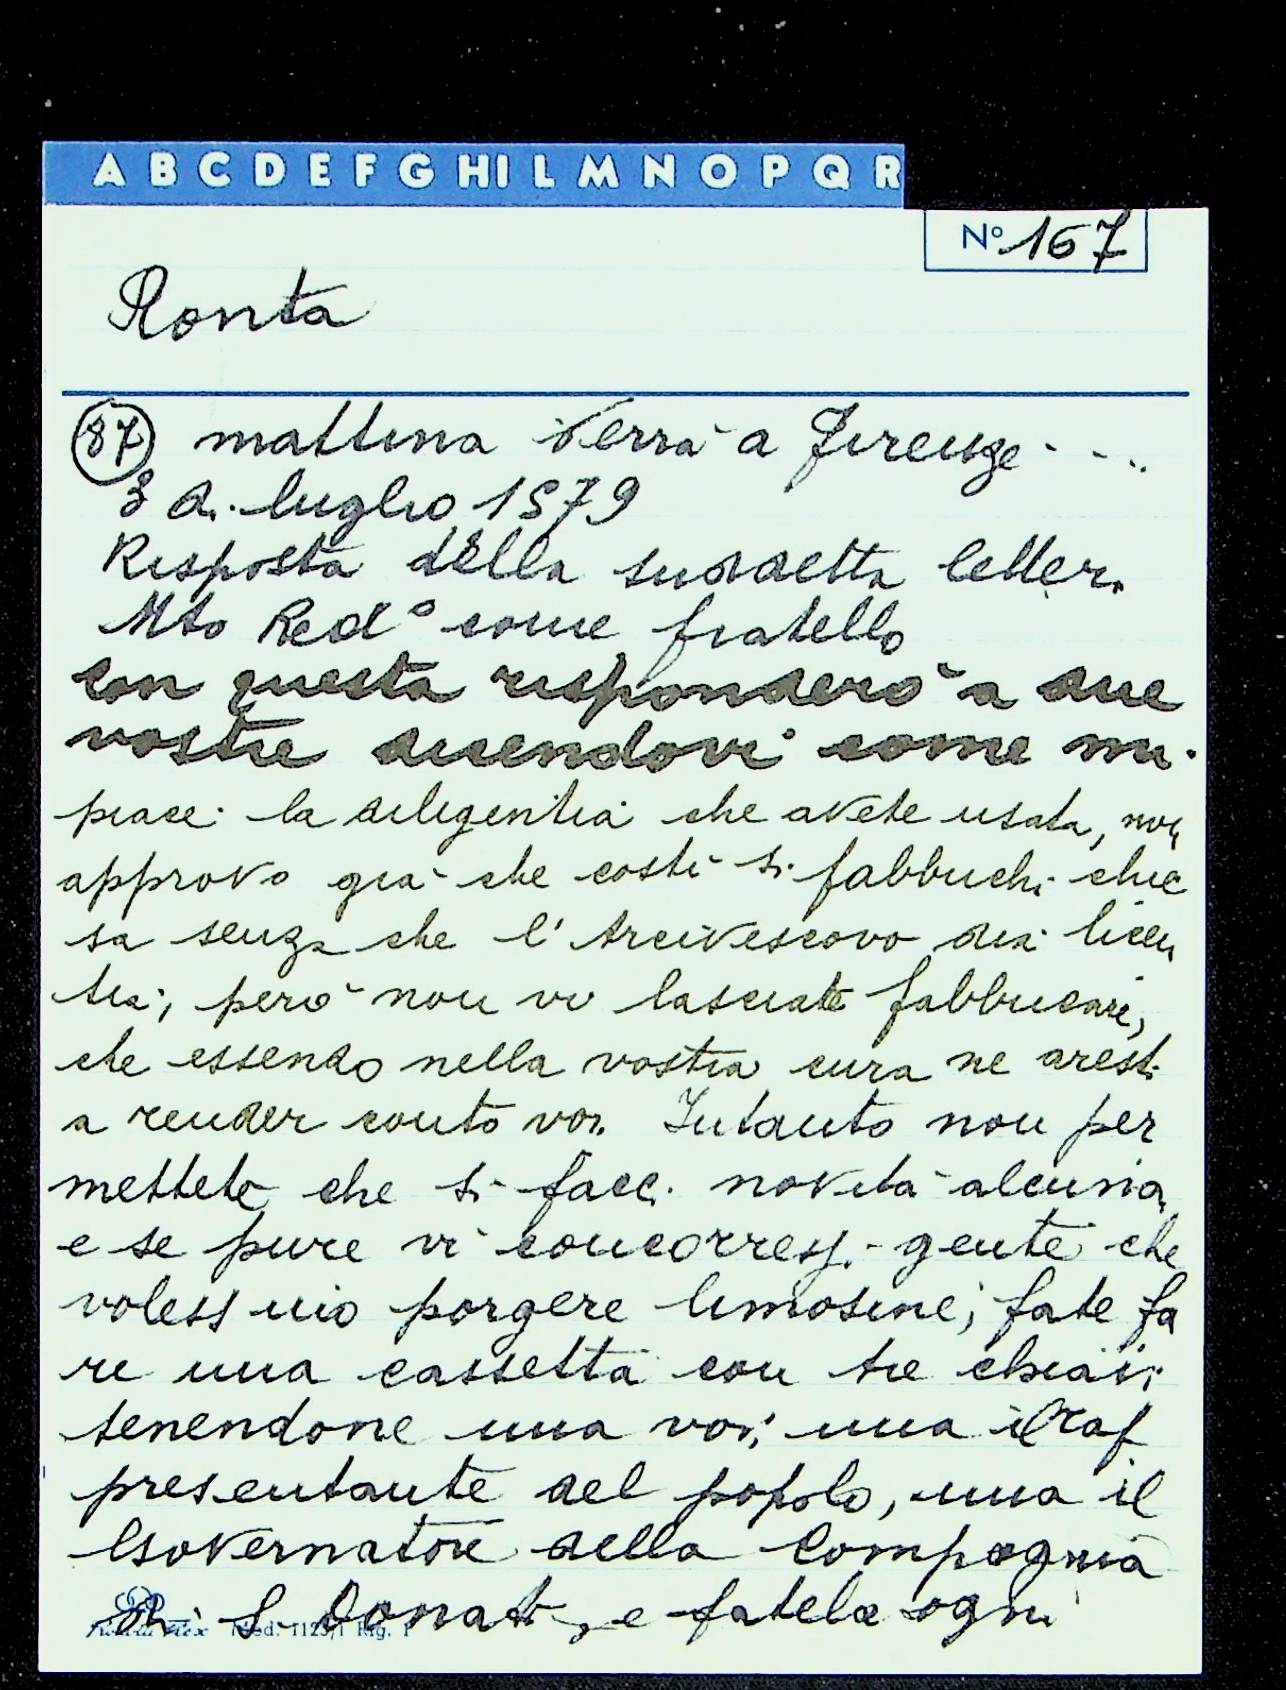 A B C D E F G H I L M N O P Q R
N° 167
Ronta
87 mattina verrà a Firenze - - ..
3 di luglio 1579
Risposta della suddetta letter.
Mto Red° come fratello
Con questa risponderò a due
vostre dicendovi come mi
piace la diligentia che avete usata, non
approvo già che costì si fabbrichi chie
sa senza che l'Arcivescovo dia licen
tia; però non vi lasciate fabbricare,
che essendo nella vostra cura ne aresti
a render conto voi. Intanto non per
mettete che si facc. novità alcuna
e se pure vi concorress. gente che
volessino porgere limosine; fate fa
re una cassetta con tre chiavi
tenendone una voi; una il rap
presentante del popolo, una il
Governatore della Compagnia
di S. Donato, e fatela ogni
Mod. 1125/1 Rig. 1